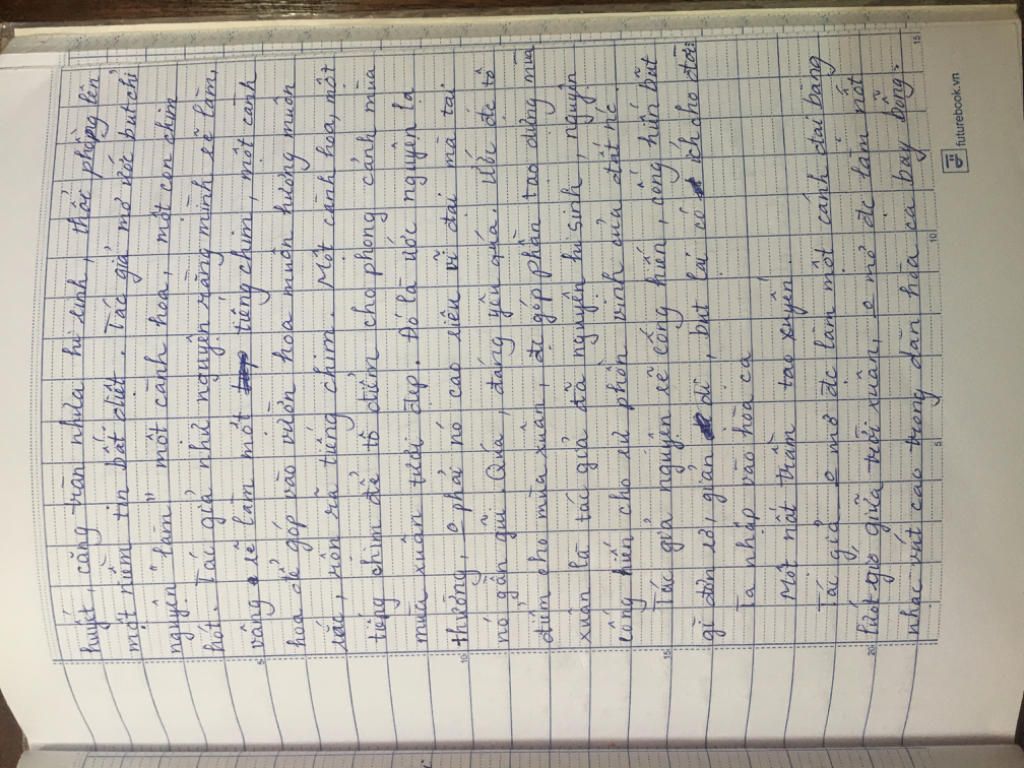 huyết, căng tràn nhựa hi sinh, thổi phồng lên
một niềm tin bất diệt. Tác giả mở ước but chỉ
nguyện "làm" một cành hoa, một con chim
hót. Tác giả như nguyện rằng mình sẽ làm,
vâng sẽ làm một tiếng chim, một cành
hoa để góp vào vườn hoa muôn hương muôn
sắc, rộn rã tiếng chim. Một cành hoa, một
tiếng chim để tô điểm cho phong cảnh mùa
mùa xuân tươi đẹp. Đó là ước nguyện la
thường, o phải nó cao siêu vĩ đại mà tại
nó gần gũi. Quá, đáng yêu quá. Ước để tô
điểm cho mùa xuân, để góp phần tạo dựng mùa
xuân là tác giả đã nguyện hi sinh, nguyện
cống hiến cho sự phồn vinh của đất nc.
Tác giả nguyện sẽ cống hiến, cống hiến but
gì đơn sơ, giản dị, but lại có ích cho đời:
Ta nhập vào hòa ca
Một nốt trầm tao xuyến.
Tác giả o mơ đc làm một cánh đại bàng
lướt gió giữa trời xuân, o mơ đc làm một
nhạc vút cao trong dàn hòa ca bay bổng.
5
10
15
20
5
10
15
futurebook.vn